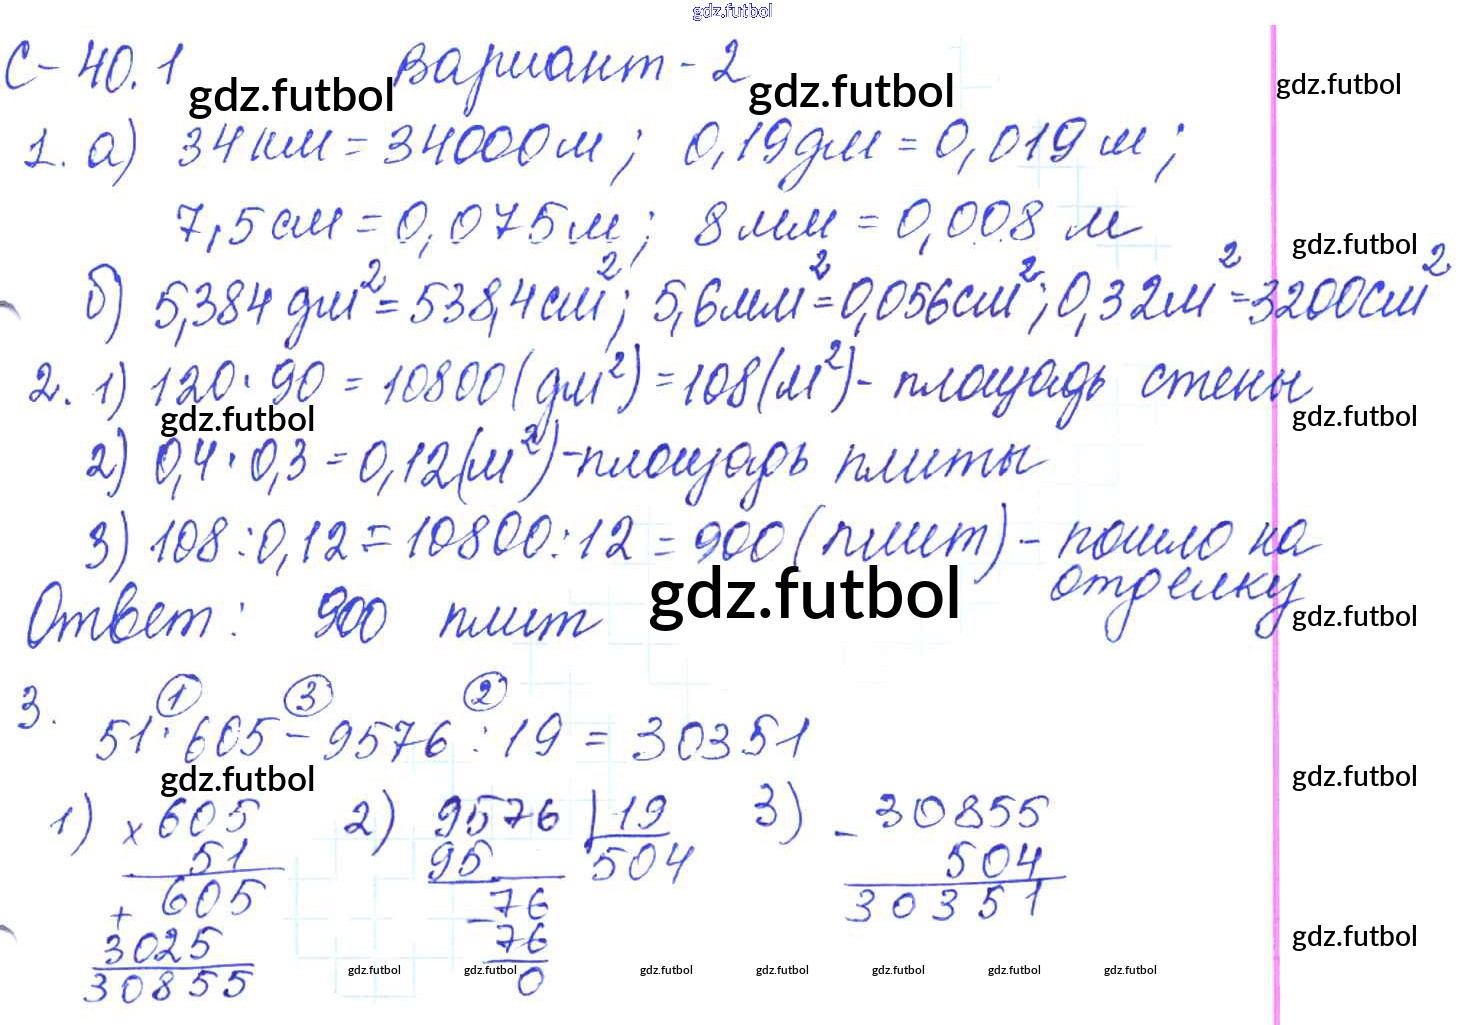 gdz.futbol
С-40.1 Вариант-2
gdz.futbol gdz.futbol gdz.futbol
1. а) 34 км = 34000 м; 0,19 дм = 0,019 м;
7,5 см = 0,075 м; 8 мм = 0,008 м
gdz.futbol
б) 5,384 дм² = 538,4 см²; 5,6 мм² = 0,056 см²; 0,32 м² = 3200 см²
2. 1) 120 · 90 = 10800 (дм²) = 108 (м²) - площадь стены
gdz.futbol gdz.futbol
2) 0,4 · 0,3 = 0,12 (м²) - площадь плиты
3) 108 : 0,12 = 10800 : 12 = 900 (плит) - пошло на
отделку
gdz.futbol gdz.futbol
Ответ: 900 плит
① ③ ②
3. 51 · 605 - 9576 : 19 = 30351
gdz.futbol gdz.futbol
1) × 605 2) 9576 | 19 3) - 30855
51 95 504 504
+ 605 - 76 30351
3025 76
30855 0
gdz.futbol
gdz.futbol gdz.futbol gdz.futbol gdz.futbol gdz.futbol gdz.futbol gdz.futbol